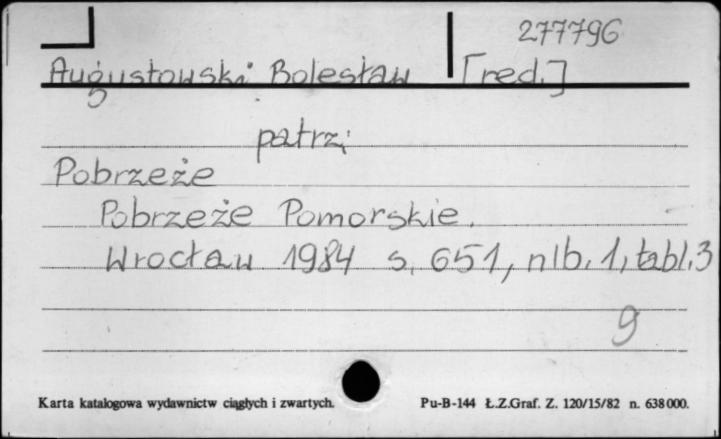 277796
Augustowski Bolesław [red.]
patrz:
Pobrzeże
Pobrzeże Pomorskie.
Wrocław 1984 s. 651, nlb. 1, tabl. 3
9
Karta katalogowa wydawnictw ciągłych i zwartych. Pu-B-144 Ł.Z.Graf. Z. 120/15/82 n. 638000.